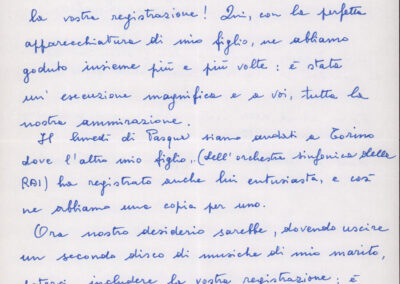 la vostra registrazione! Qui, con la perfetta
apparecchiatura di mio figlio, ne abbiamo
goduto insieme più e più volte: è stata
un' esecuzione magnifica e a voi, tutta la
nostra ammirazione.
Il lunedì di Pasqua siamo andati a Torino
dove l'altro mio figlio, (dell'orchestra sinfonica della
RAI) ha registrato anche lui entusiasta, e così
ne abbiamo una copia per uno.
Ora nostro desiderio sarebbe, dovendo uscire
un secondo disco di musiche di mio marito,
includere la vostra registrazione: è